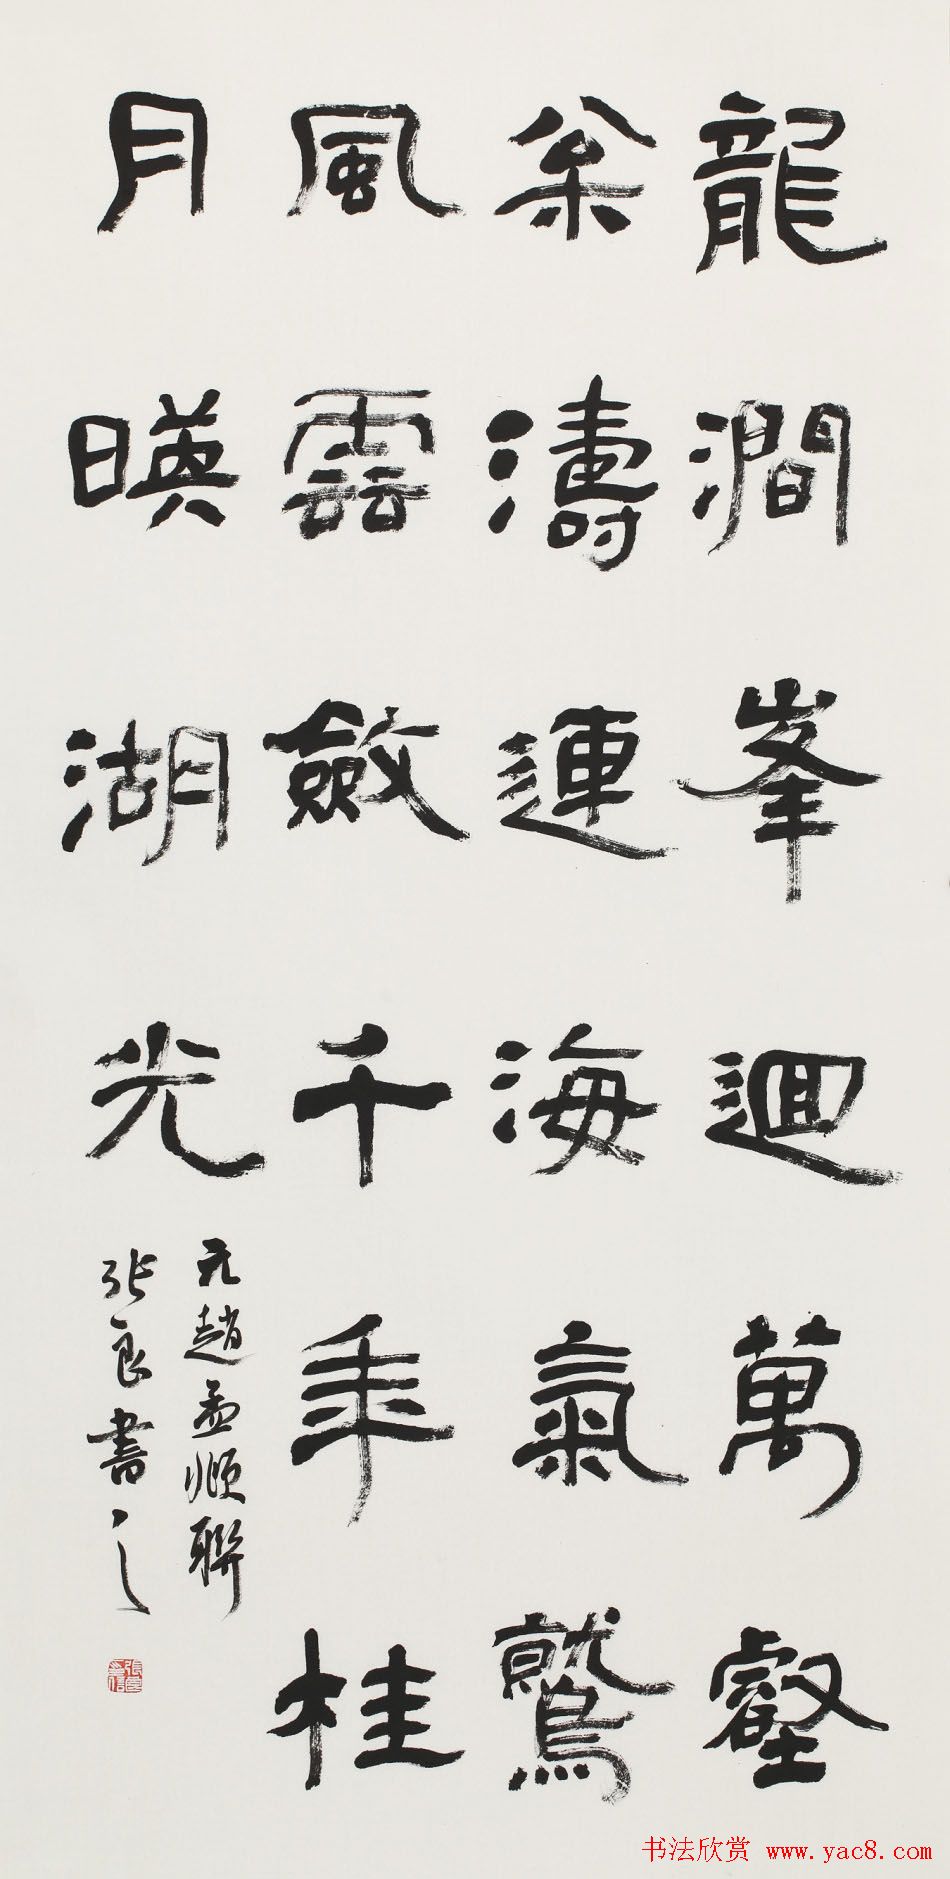 龍澗峯迴萬壑
枀濤連海氣鷲
風雲斂千年桂
月暎湖光
元趙孟頫聯
張良書之
书法欣赏 www.yac8.com